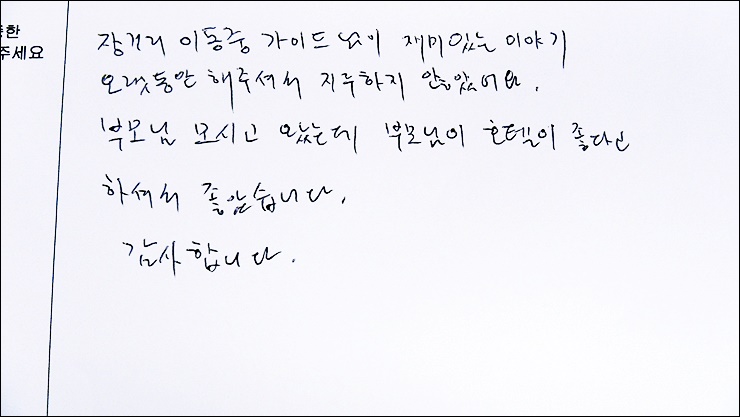 한
주세요
장거리 이동중 가이드님이 재미있는 이야기
오랫동안 해주셔서 지루하지 않았어요.
부모님 모시고 왔는데 부모님이 호텔이 좋다고
하셔서 좋았습니다.
감사합니다.